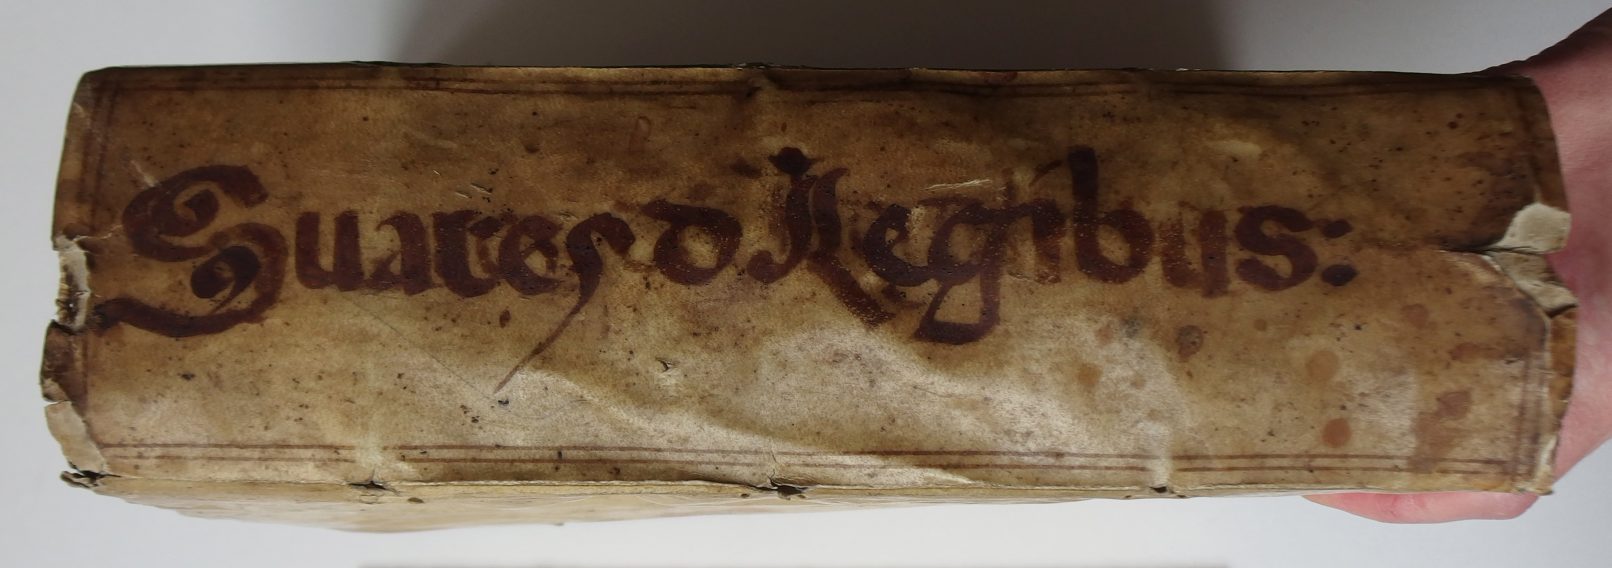 Suares d Legibus: